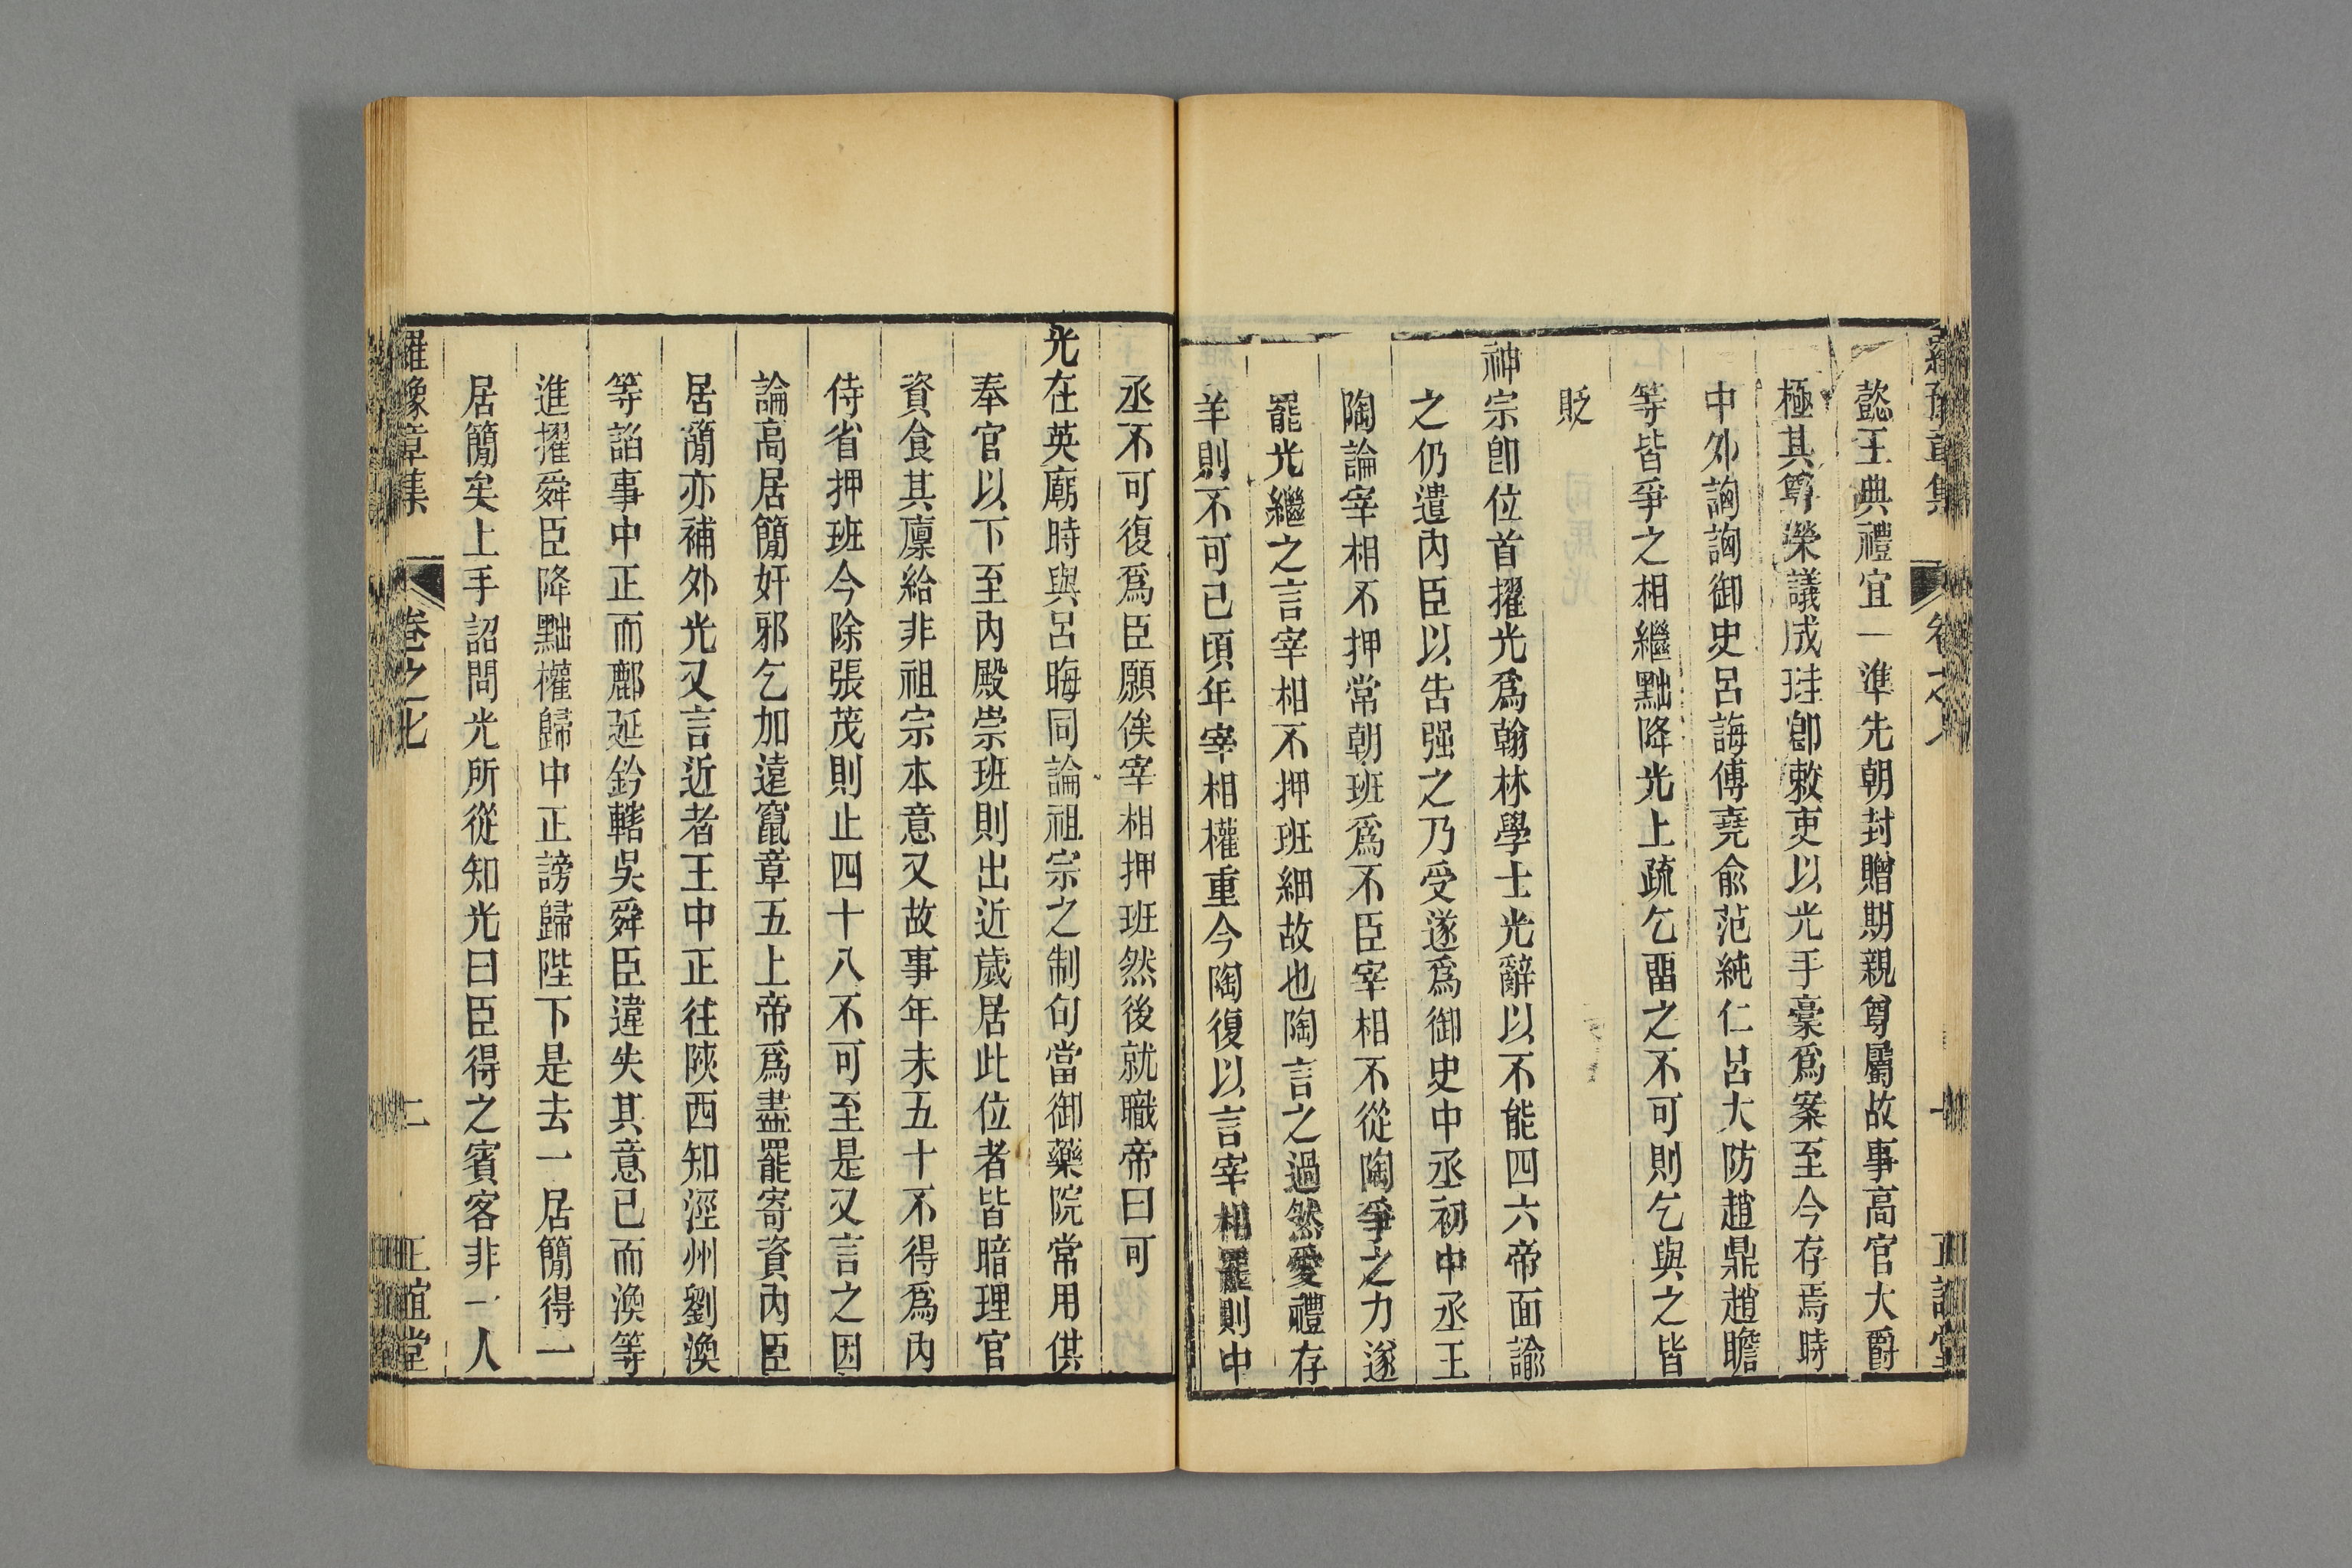 懿王典禮宜一準先朝封贈期親尊屬故事高官大爵
極其尊榮議成珪卽敕吏以光手藁爲案至今存焉時
中外訩訩御史呂誨傅堯俞范純仁呂大防趙鼎趙瞻
等皆爭之相繼黜降光上疏乞畱之不可則乞與之皆
貶
神宗卽位首擢光爲翰林學士光辭以不能四六帝面諭
之仍遣內臣以告强之乃受遂爲御史中丞初中丞王
陶論宰相不押常朝班爲不臣宰相不從陶爭之力遂
罷光繼之言宰相不押班細故也陶言之過然愛禮存
羊則不可已頃年宰相權重今陶復以言宰相罷則中
丞不可復爲臣願俟宰相押班然後就職帝曰可
光在英廟時與呂晦同論祖宗之制句當御藥院常用供
奉官以下至內殿崇班則出近歲居此位者皆暗理官
資食其廩給非祖宗本意又故事年未五十不得爲內
侍省押班今除張茂則止四十八不可至是又言之因
論高居簡奸邪乞加遠竄章五上帝爲盡罷寄資內臣
居簡亦補外光又言近者王中正往陝西知涇州劉渙
等諂事中正而鄜延鈐轄吳舜臣違失其意已而渙等
進擢舜臣降黜權歸中正謗歸陛下是去一居簡得一
居簡矣上手詔問光所從知光曰臣得之賓客非一人
羅豫章集 卷之七 二 正誼堂